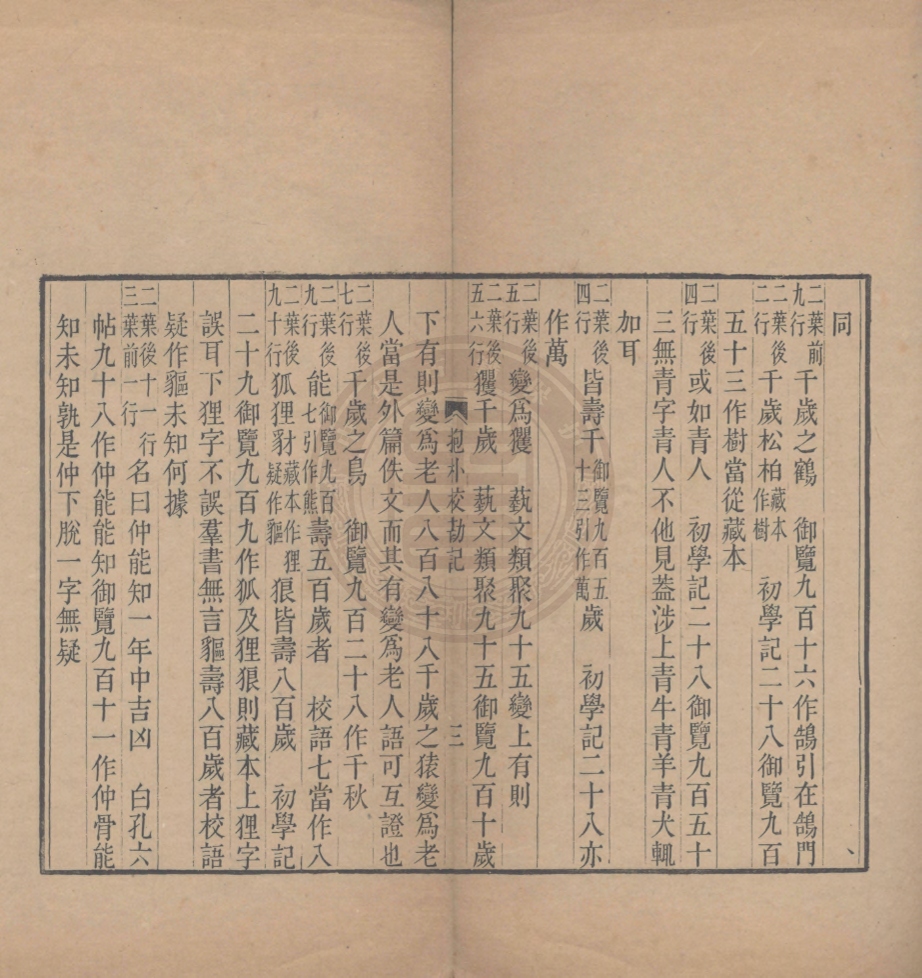 同
二葉前九行千歲之鶴　御覽九百十六作鵠引在鵠門
二葉後二行千歲松柏藏本作樹　初學記二十八御覽九百
五十三作樹當從藏本
二葉後四行或如青人　初學記二十八御覽九百五十
三無青字青人不他見葢涉上青牛青羊青犬輒
加耳
二葉後四行皆壽千御覽九百五十三引作萬歲　初學記二十八亦
作萬
二葉後五行變爲玃　蓺文類聚九十五變上有則
二葉後五六行玃千歲　蓺文類聚九十五御覽九百十歲
抱朴校勘記　三
下有則變爲老人八百八十八千歲之猿變爲老
人當是外篇佚文而其有變爲老人語可互證也
二葉後七行千歲之鳥　御覽九百二十八作千秋
二葉後九行能御覽九百七引作熊壽五百歲者　校語七當作八
二葉後九十行狐狸豺藏本作狸疑作貙狼皆壽八百歲　初學記
二十九御覽九百九作狐及狸狼則藏本上狸字
誤耳下狸字不誤羣書無言貙壽八百歲者校語
疑作貙未知何據
二葉後十一行三葉前一行名曰仲能知一年中吉凶　白孔六
帖九十八作仲能能知御覽九百十一作仲骨能
知未知孰是仲下脫一字無疑